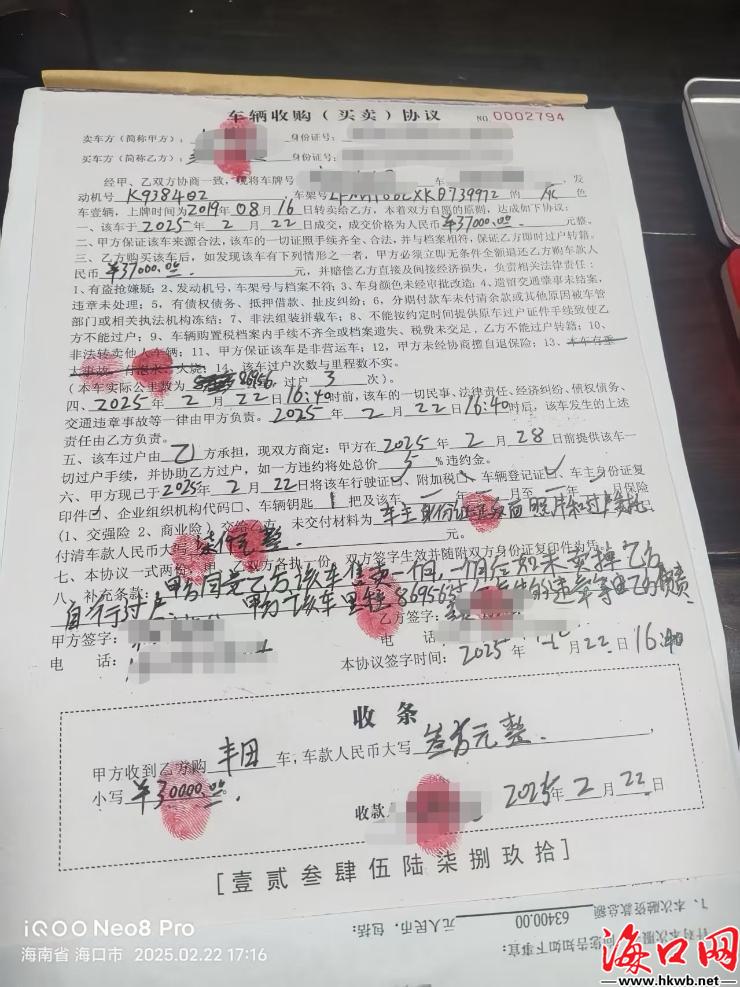 车辆收购（买卖）协议 NO 0002794
卖车方（简称甲方）： 身份证号：
买车方（简称乙方）： 身份证号：
经甲、乙双方协商一致，现将车牌号 车 ，发
动机号 K938402 车架号 的 灰 色
车壹辆，上牌时间为2019年08月16日转卖给乙方，本着双方自愿的原则，达成如下协议：
一、该车于2025年2月22日成交，成交价格为人民币¥37000.00元整。
二、甲方保证该车来源合法，该车的一切证照手续齐全、合法，并与档案相符，保证乙方即时过户转籍。
三、乙方购买该车后，如发现该车有下列情形之一者，甲方必须立即无条件全额退还乙方购车款人
民币¥37000.00元，并赔偿乙方直接及间接经济损失，负责相关法律责任：
1、有盗抢嫌疑；2、发动机号，车架号与档案不符；3、车身颜色未经审批改造；4、遗留交通肇事未结案，
违章未处理；5，有债权债务、抵押借款、扯皮纠纷；6，分期付款车未付清余款或其他原因被车管
部门或相关执法机构冻结；7、非法组装拼载车；8、不能按约定时间提供原车过户证件手续致使乙
方不能过户；9、车辆购置税档案内手续不齐全或档案遗失、税费未交足，乙方不能过户转籍；10、
非法转卖他人车辆；11、甲方保证该车是非营运车；12，甲方未经协商擅自退保险；13、本车有重
大事故、有泡水、火烧；14、该车过户次数与里程数不实。
（本车实际公里数为 86956，过户 3 次）。
四、2025年2月22日16:40时前，该车的一切民事、法律责任、经济纠纷、债权债务、
交通违章事故等一律由甲方负责。2025年2月22日16:40时后，该车发生的上述
责任由乙方负责。
五、该车过户由 乙 方承担，现双方商定：甲方在2025年2月28日前提供该车一
切过户手续，并协助乙方过户，如一方违约将处总价 5 %违约金。
六、甲方现已于2025年2月22日将该车行驶证☑、附加税☐、车辆登记证☑、车主身份证复
印件☑、企业组织机构代码☐、车辆钥匙 1 把及该车 一 年 一 月至 一 年 一 月保险
(1、交强险 2、商业险）交给乙方。未交付材料为 车主身份证正反面照片和过户委托
付清车款人民币大写 柒仟元整. 元。
七、本协议一式两份，甲、乙双方各执一份，双方签字生效并随附双方身份证复印件为凭。
八、补充条款：甲方同意乙方该车售卖一个月，一个月后如未卖掉乙方
自行过户. 甲方于该车里程86956 的违章等由乙方负责
甲方签字： 乙方签字：
电 话： 电 话
本协议签字时间：2025年2月22日16:40
收 条
甲方收到乙方购 丰田 车，车款人民币大写 叁万元整.
小写 ¥30000.00.
收款 2025年2月22日
[壹贰叁肆伍陆柒捌玖拾]
针对本次服 向您告知如下事宜：
1、本次融资款总额 63400.00 元人民币，包括：
iQOO Neo8 Pro
海南省 海口市 2025.02.22 17:16
海口网
www.hkwb.net